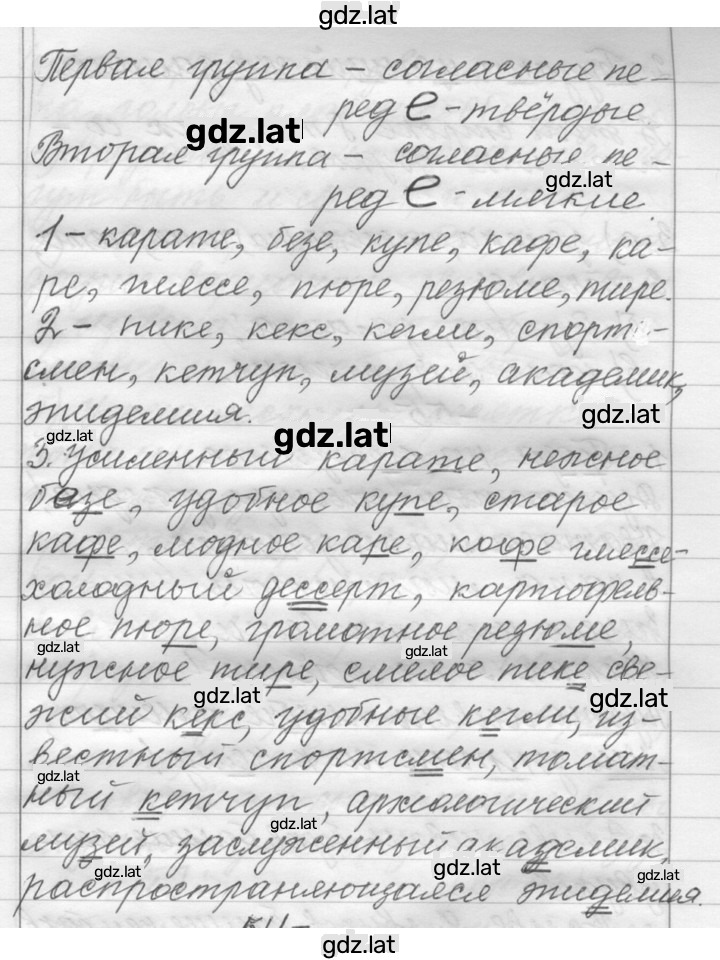 gdz.lat
Первая группа – согласные пе-
ред е - твёрдые.
gdz.lat
Вторая группа – согласные пе-
gdz.lat
ред е - мягкие.
1 – карате, безе, купе, кафе, ка-
ре, гляссе, пюре, резюме, тире.
2 – пике, кекс, кегли, спорт-
смен, кетчуп, музей, академик,
gdz.lat
эпидемия.
gdz.lat
gdz.lat
3. Усиленный карате, нежное
базе, удобное купе, старое
кафе, модное каре, кофе глессе-
холодный дессерт, картофель-
ное пюре, грамотное резюме,
gdz.lat
gdz.lat
нужное тире, смелое пике све-
gdz.lat
gdz.lat
жий кекс, удобные кегли, из-
вестный спортсмен, томат-
gdz.lat
ный кетчуп, археологический
gdz.lat
музей, заслуженный академик,
gdz.lat
gdz.lat
gdz.lat
распространяющаяся эпидемия.
gdz.lat